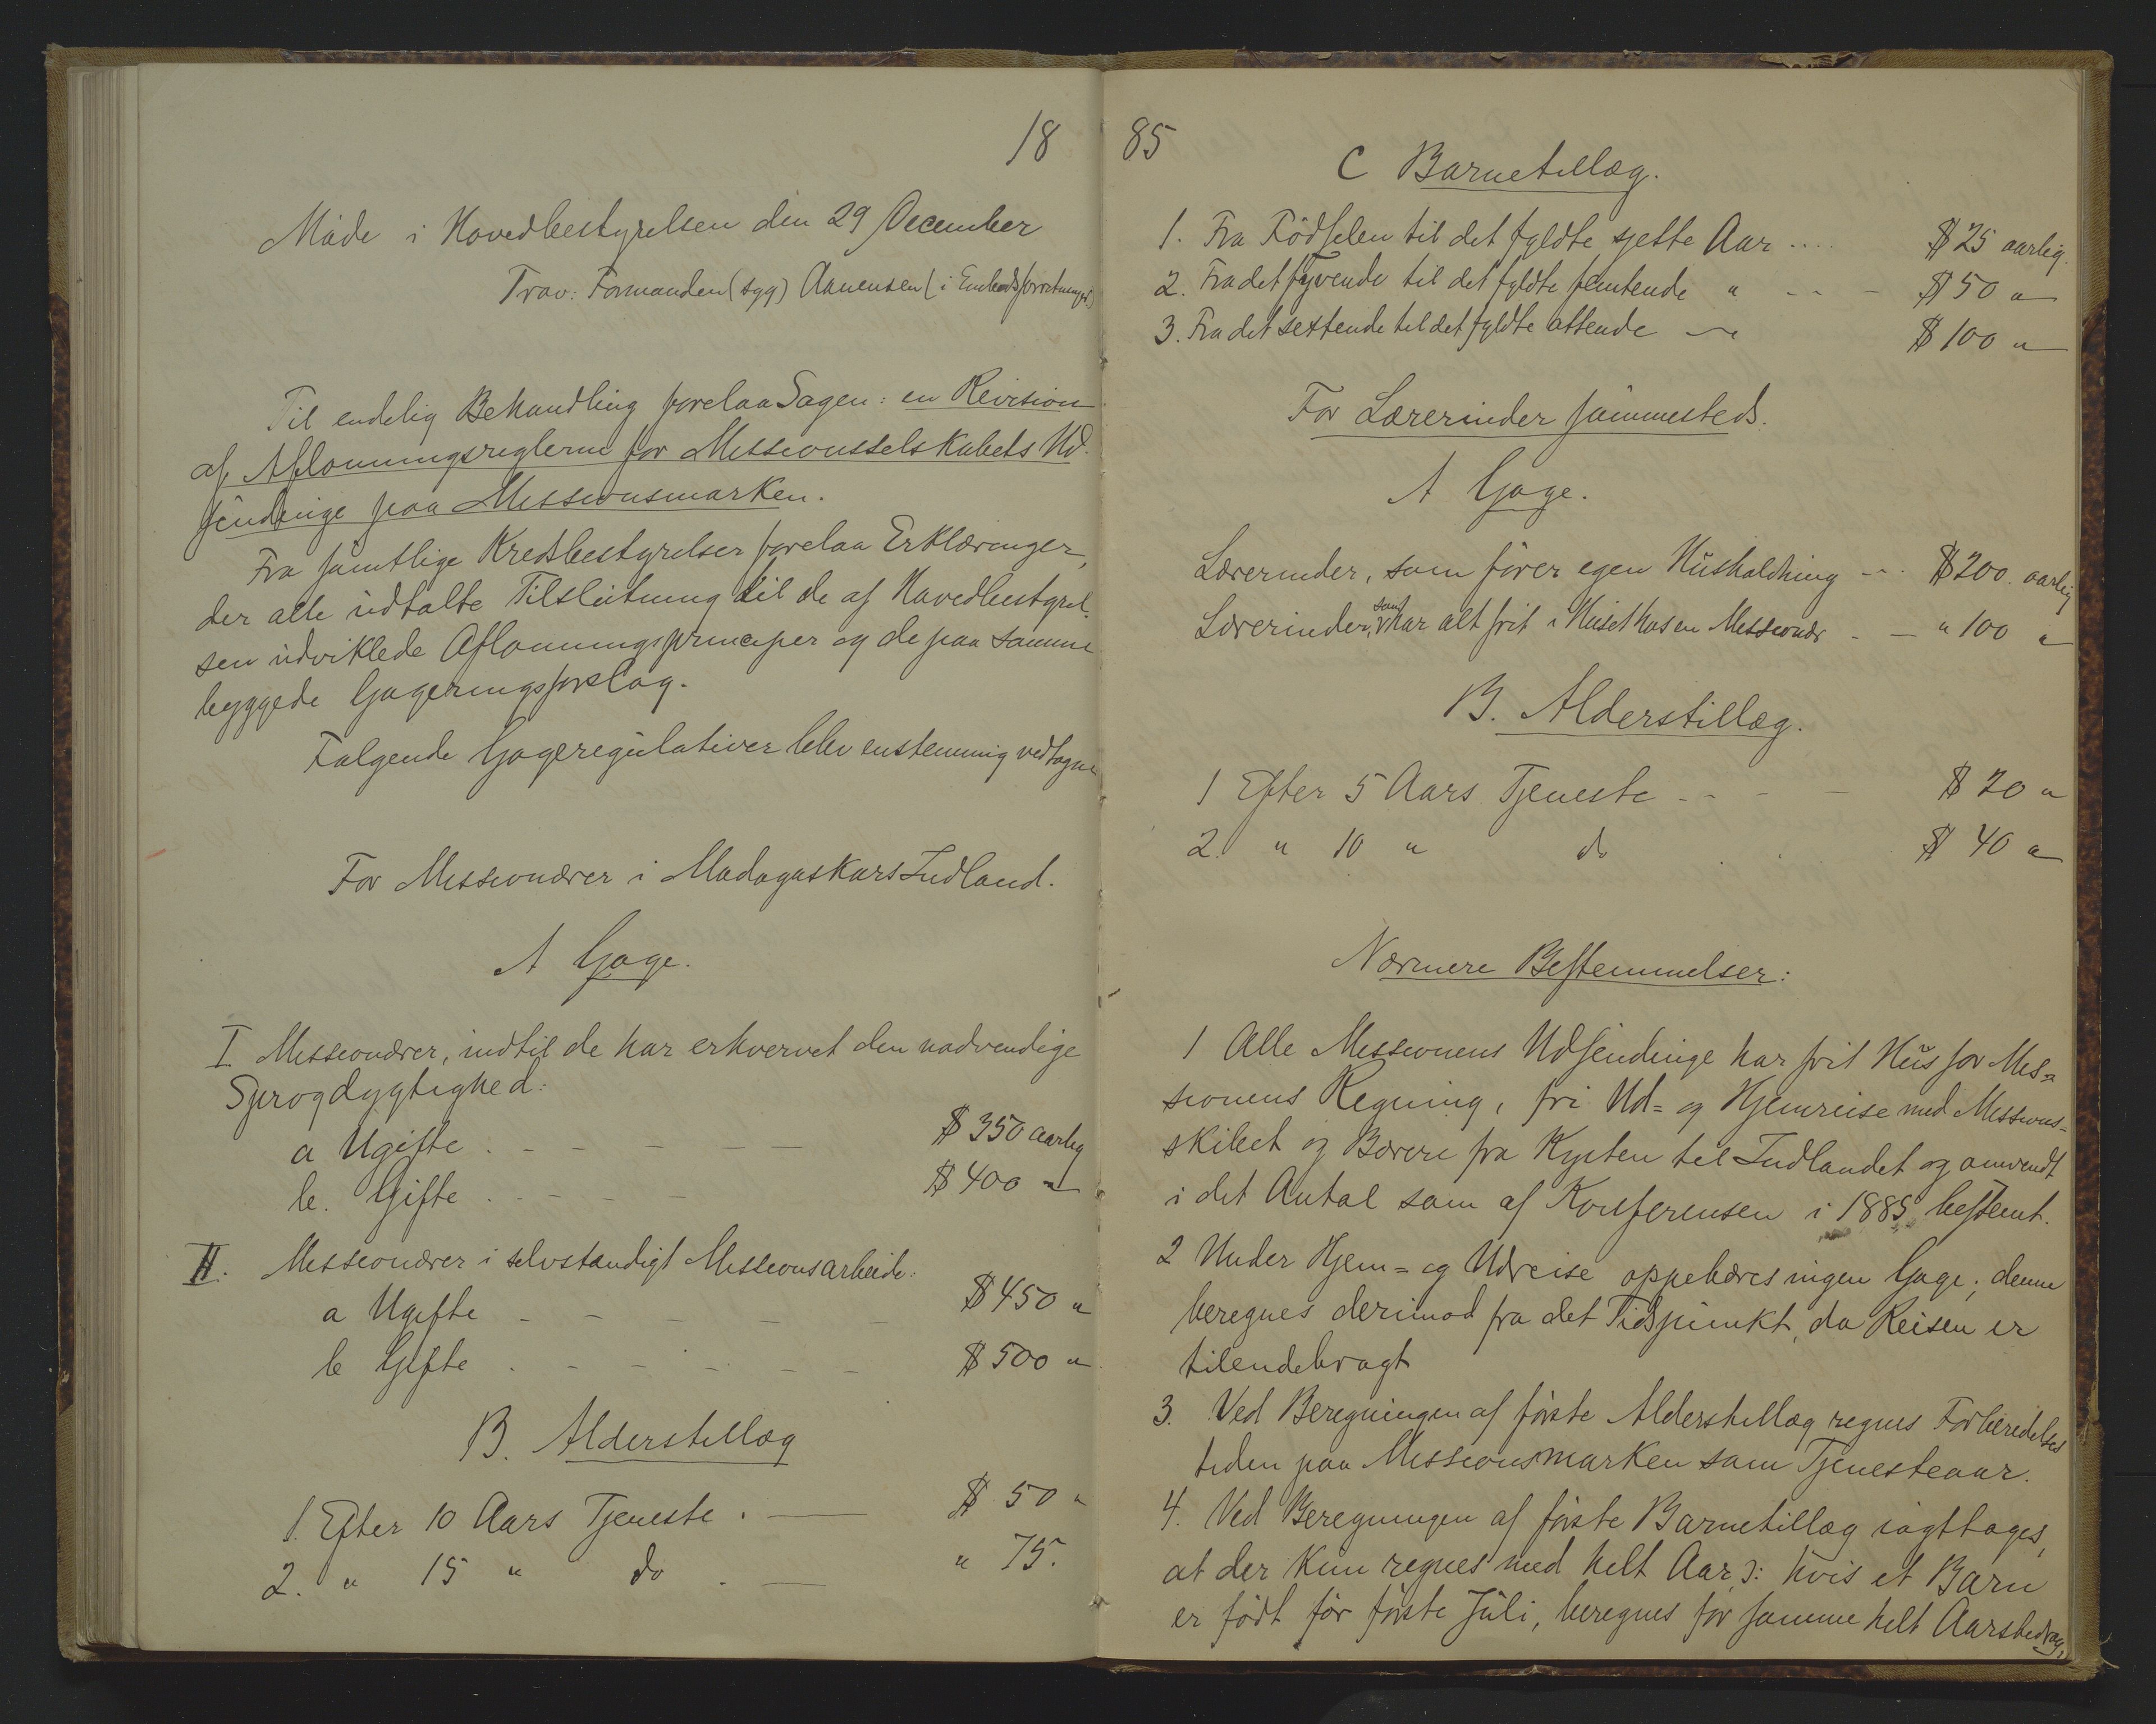 18
Möde i Hovedbestyrelsen den 29 December
Frav: Formanden (syg) Aanensen (i Embedsforretninger)
Til endelig Behandling forelaa Sagen: en Revision
af Aflønningsreglerne for Missionsselskabets Ud-
sendinge paa Missionsmarken.
Fra samtlige Kredsbestyrelser forelaa Erklæringer,
der alle udtalte Tilslutning til de af Hovedbestyrel-
sen udviklede Aflønningsprinciper og de paa samme
byggede Gageringsforslag.
Følgende Gageregulativer blev enstemmig vedtagne
For Missionærer i Madagaskars Indland.
A Gage.
I. Missionærer, indtil de har erhvervet den nødvendige
Sprogdygtighed:
a Ugifte . - - - - - $ 350 aarlig
b. Gifte . - - - - $ 400 "
II. Missionærer i selvstændigt Missionsarbeide:
a Ugifte - - - - - $ 450 "
b Gifte . - - - - - $ 500 "
B. Alderstillæg
1. Efter 10 Aars Tjeneste . — $ 50 "
2. " 15 " do . — " 75.
85
C Barnetillæg.
1. Fra Födselen til det fyldte sjette Aar .... $ 25 aarlig.
2. Fra det syvende til det fyldte femtende " - - - $ 50 "
3. Fra det sextende til det fyldte attende — " $ 100 "
For Lærerinder sammesteds.
A Gage.
Lærerinder, som förer egen Husholdning - - $ 200. aarlig
Lærerinder, som har alt frit i Huset hos en Missionær - - " 100 "
B. Alderstillæg.
1 Efter 5 Aars Tjeneste - - - - $ 20 "
2. " 10 " do . . $ 40 "
Nærmere Bestemmelser:
1 Alle Missionens Udsendinge har frit Hus for Mis=
sionens Regning, fri Ud= og Hjemreise med Missions=
skibet og Bærere fra Kysten til Indlandet og omvendt
i det Antal som af Konferensen i 1885 bestemt.
2 Under Hjem= og Udreise oppebæres ingen Gage; denne
beregnes derimod fra det Tidspunkt, da Reisen er
tilendebragt
3. Ved Beregningen af förste Alderstillæg regnes Forberedelses
tiden paa Missionsmarken som Tjenesteaar.
4. Ved Beregningen af förste Barnetillæg iagttages,
at der kun regnes med helt Aar, ɔ: hvis et Barn
er födt för förste Juli, beregnes for samme helt Aarsbedrag,